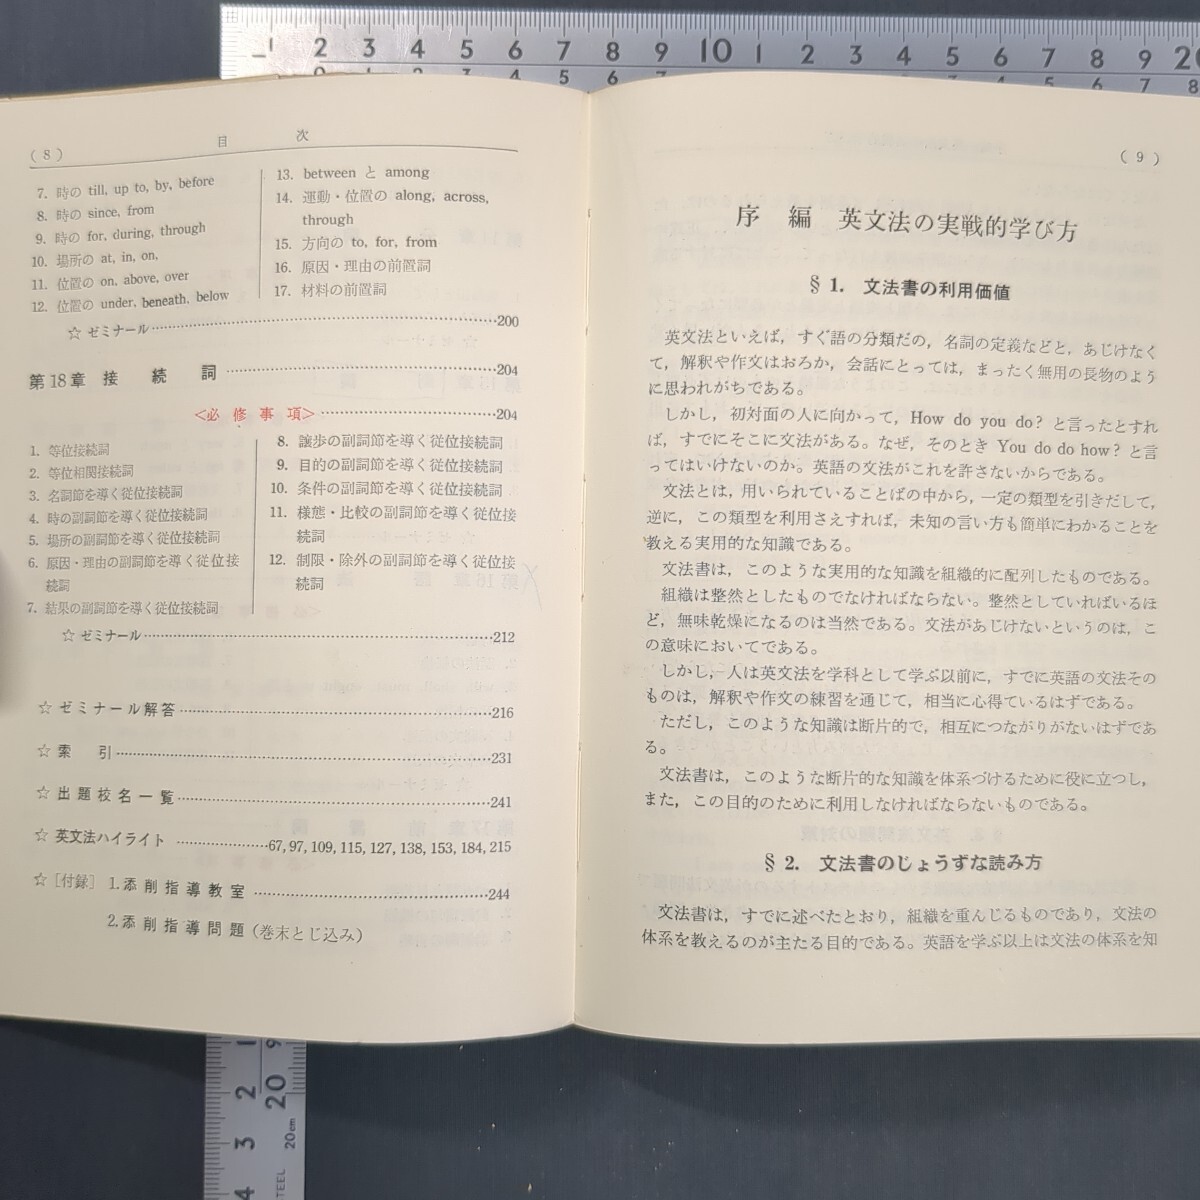 1 2 3 4 5 6 7 8 9 10 1 2 3 4 5 6 7 8 9 20
(8) 目 次
7. 時の till, up to, by, before
8. 時の since, from
9. 時の for, during, through
10. 場所の at, in, on,
11. 位置の on, above, over
12. 位置の under, beneath, below
13. between と among
14. 運動・位置の along, across,
through
15. 方向の to, for, from
16. 原因・理由の前置詞
17. 材料の前置詞
☆ ゼミナール……200
第18章 接 続 詞……204
<必 修 事 項>……204
1. 等位接続詞
2. 等位相関接続詞
3. 名詞節を導く従位接続詞
4. 時の副詞節を導く従位接続詞
5. 場所の副詞節を導く従位接続詞
6. 原因・理由の副詞節を導く従位接
続詞
7. 結果の副詞節を導く従位接続詞
8. 譲歩の副詞節を導く従位接続詞
9. 目的の副詞節を導く従位接続詞
10. 条件の副詞節を導く従位接続詞
11. 様態・比較の副詞節を導く従位接
続詞
12. 制限・除外の副詞節を導く従位接
続詞
☆ ゼミナール……212
☆ ゼミナール解答……216
☆ 索 引……231
☆ 出題校名一覧……241
☆ 英文法ハイライト……67, 97, 109, 115, 127, 138, 153, 184, 215
☆ [付録] 1. 添削指導教室……244
2. 添削指導問題 (巻末とじ込み)
(9)
序 編 英文法の実戦的学び方
§ 1. 文法書の利用価値
英文法といえば，すぐ語の分類だの，名詞の定義などと，あじけなく
て，解釈や作文はおろか，会話にとっては，まったく無用の長物のよう
に思われがちである。
しかし，初対面の人に向かって，How do you do? と言ったとすれ
ば，すでにそこに文法がある。なぜ，そのとき You do do how? と言
ってはいけないのか。英語の文法がこれを許さないからである。
文法とは，用いられていることばの中から，一定の類型を引きだして，
逆に，この類型を利用さえすれば，未知の言い方も簡単にわかることを
教える実用的な知識である。
文法書は，このような実用的な知識を組織的に配列したものである。
組織は整然としたものでなければならない。整然としていればいるほ
ど，無味乾燥になるのは当然である。文法があじけないというのは，こ
の意味においてである。
しかし，人は英文法を学科として学ぶ以前に，すでに英語の文法その
ものは，解釈や作文の練習を通じて，相当に心得ているはずである。
ただし，このような知識は断片的で，相互につながりがないはずであ
る。
文法書は，このような断片的な知識を体系づけるために役に立つし，
また，この目的のために利用しなければならないものである。
§ 2. 文法書のじょうずな読み方
文法書は，すでに述べたとおり，組織を重んじるものであり，文法の
体系を教えるのが主たる目的である。英語を学ぶ以上は文法の体系を知
1 2 3 4
9 20
20cm
STEEL